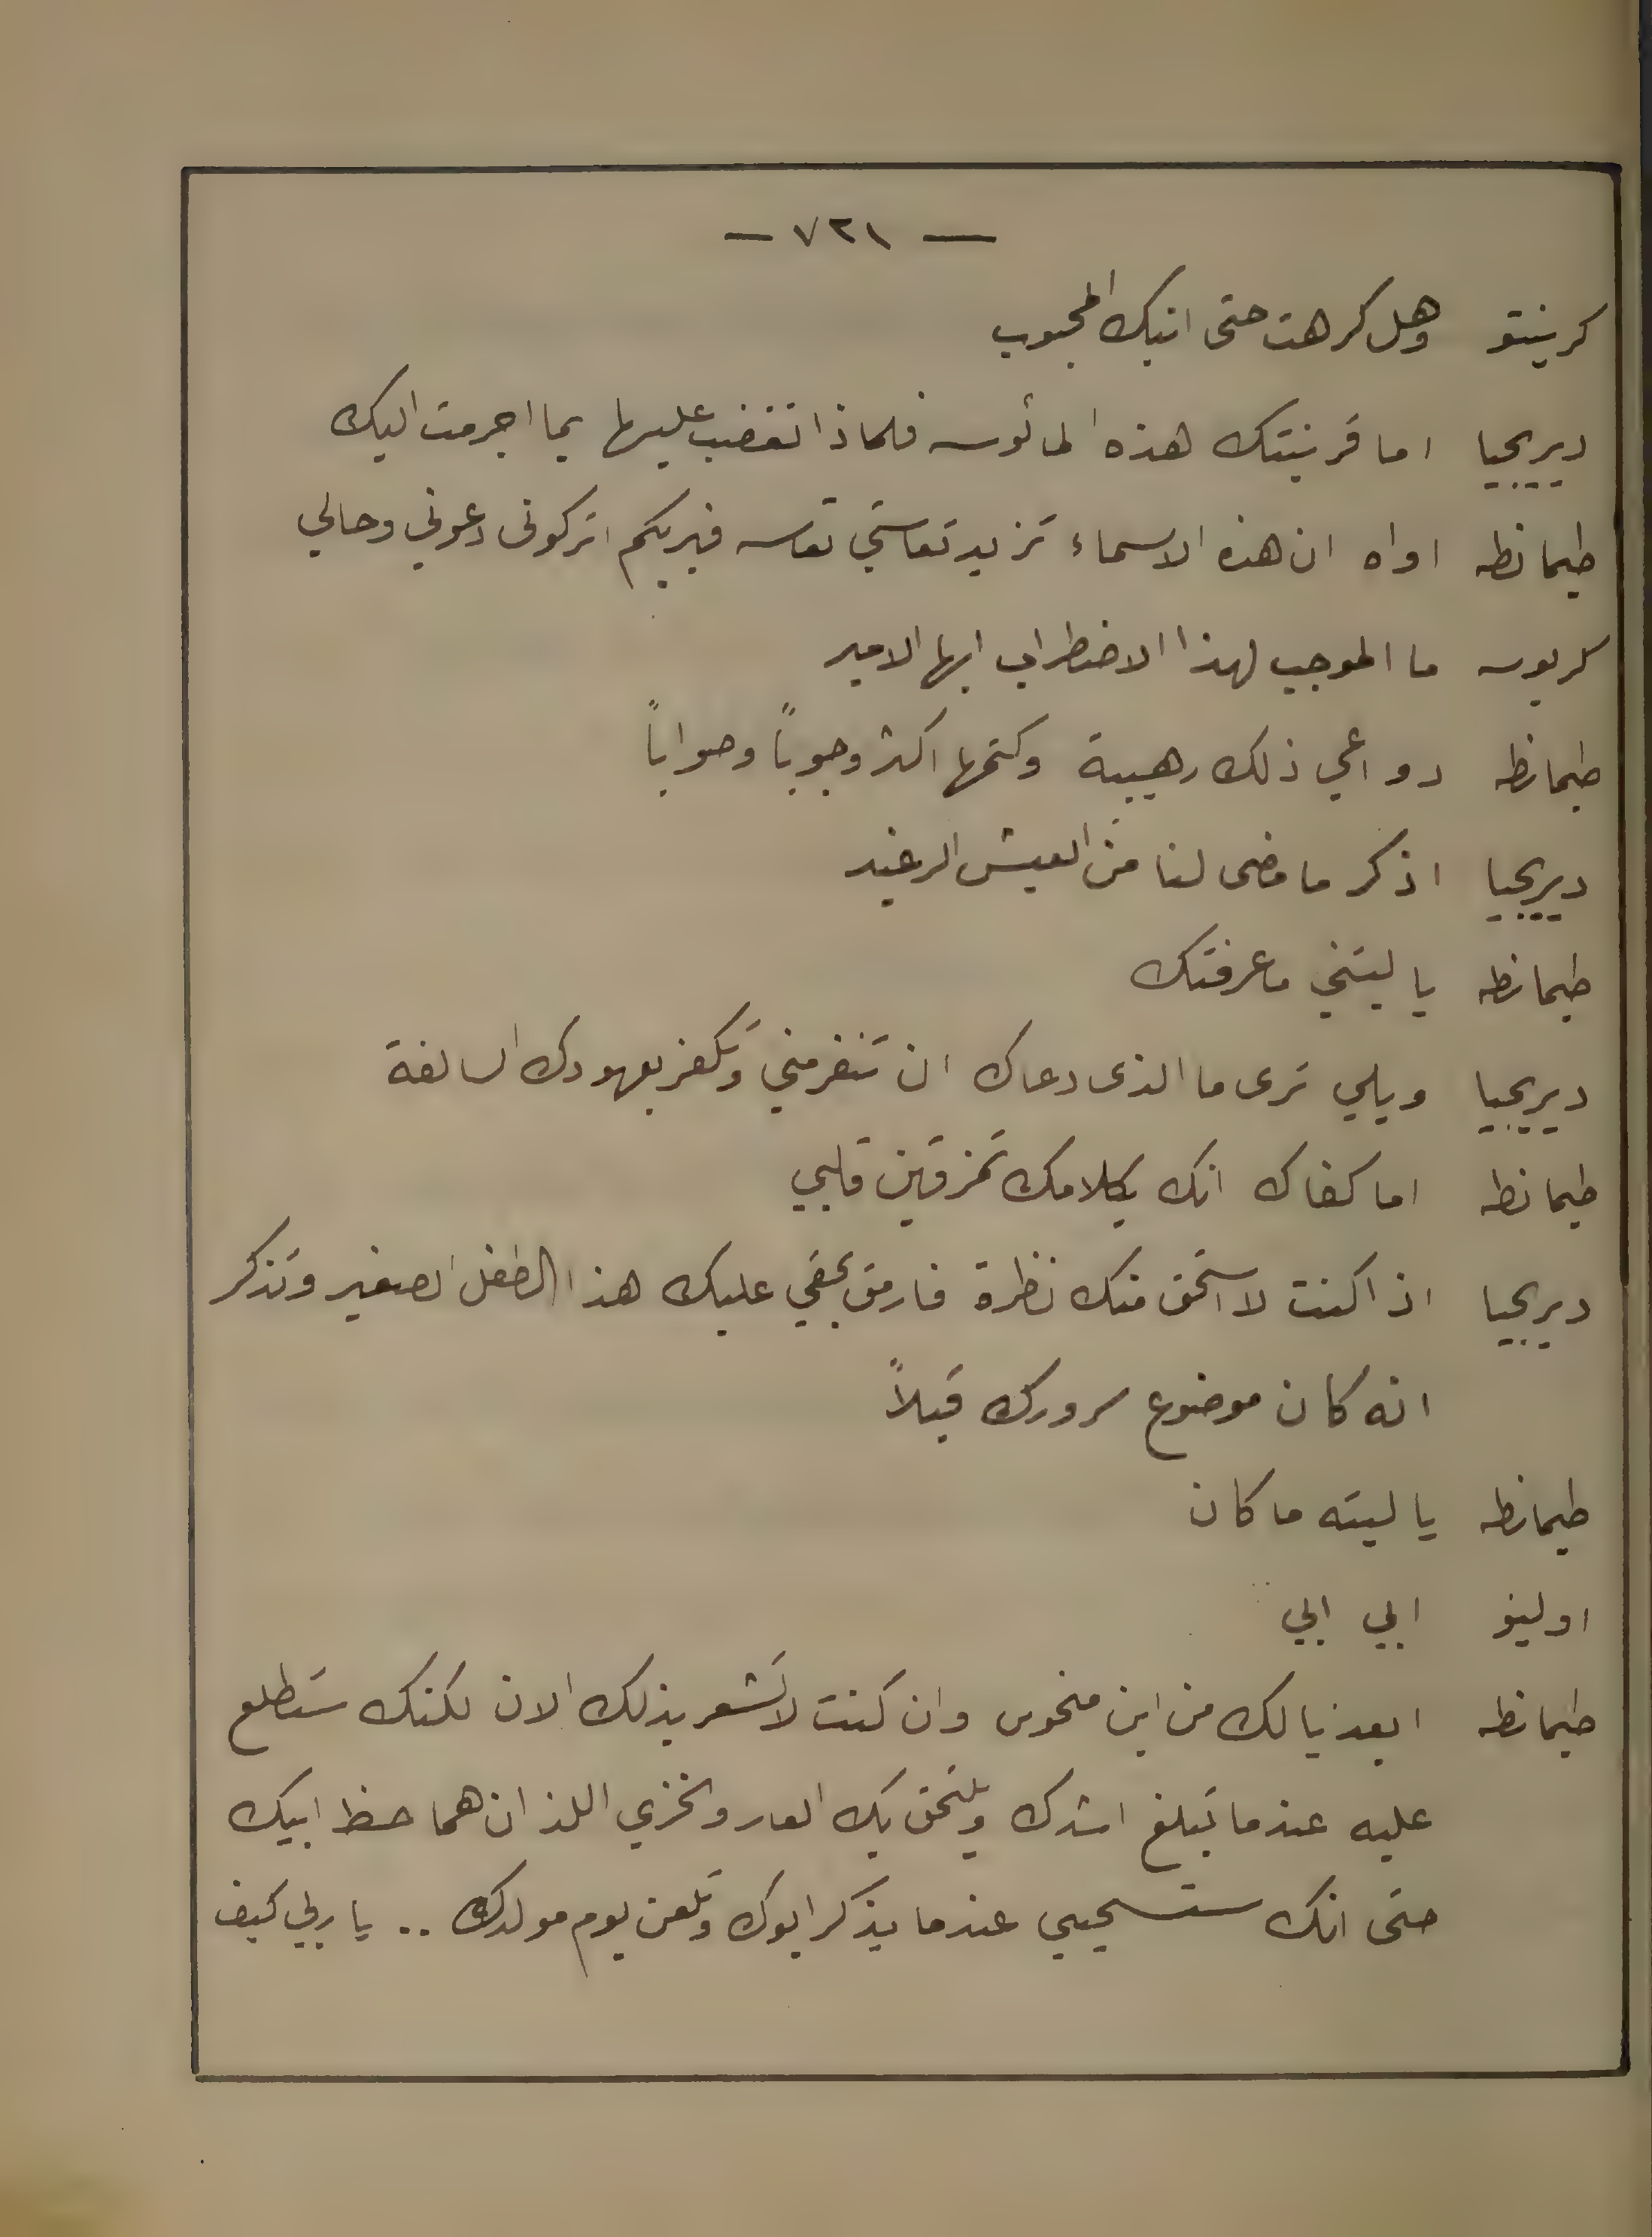 — ٧٢١ —
كرينتو وهل كرهت حتى ابنك المحبوب
ديريجيا اما قرينتك هذه المأنوسه فلماذا تغضب عليها بما اجرمت اليك
طيمانطه اواه ان هذه الاسماء تزيد تعاستي تعاسه فبربكم اتركونى دعوني وحالي
كربوسه ما الموجب لهذا الاضطراب ايها الامير
طيمانطه دواعي ذلك رهيبة وكتمها اكثر وجوباً وصواباً
ديريجيا اذكر ما مضى لنا من العيش الرغيد
طيمانطه يا ليتني ما عرفتك
ديريجيا ويلي ترى ما الذى دعاك ان تنفر مني وتكفر بعهودك السالفة
طيمانطه اما كفاك انك بكلامك تمزقين قلبي
ديريجيا اذا كنت لا استحق منك نظرة فارمق بحقي عليك هذا الطفل الصغير وتذكر
انه كان موضوع سرورك قبلاً
طيمانطه يا ليته ما كان
اولينو ابي ابي
طيمانطه ابعد يا لك من ابن منحوس وان كنت لا تشعر بذلك الان لكنك ستطلع
عليه عندما تبلغ اشدك ويلتحق بك العار والخزي اللذان هما حظ ابيك
حتى انك ستسحيي عندما يذكر ابوك وتلعن يوم مولدك .. يا ربي كيف